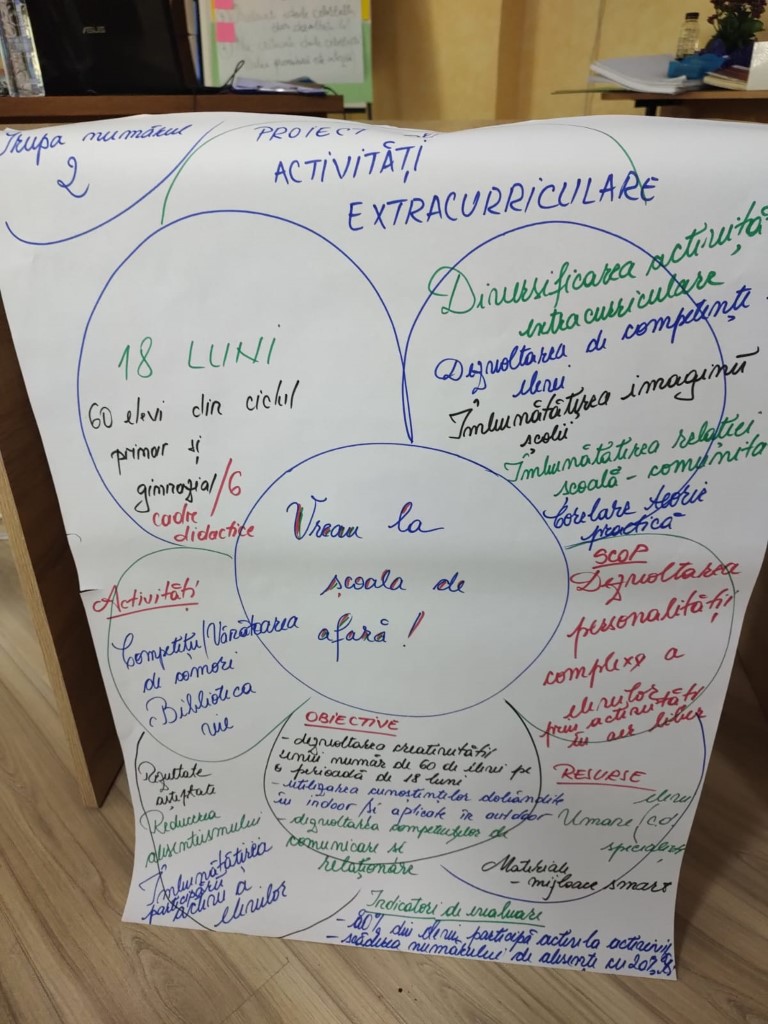 ASUS
Grupa numărul
2
PROIECT
ACTIVITĂȚI
EXTRACURRICULARE
18 LUNI
60 elevi din ciclul
primar și
gimnazial/6
cadre
didactice
Diversificarea activită
extracurriculare
Dezvoltarea de competențe
elevi
Îmbunătățirea imaginii
școlii
Îmbunătățirea relației
școală - comunita
Corelare teorie
practică
Vreau la
școala de
afară!
Activități
Competiții/Vânătoarea
de comori
Biblioteca
vie
SCOP
Dezvoltarea
personalității
complexe a
elevilor
prin activități
în aer liber
OBIECTIVE
- dezvoltarea creativității
unui număr de 60 de elevi pe
o perioadă de 18 luni
- utilizarea cunoștințelor dobândite
în indoor și aplicate în outdoor
- dezvoltarea competențelor de
comunicare si
relaționare
Rezultate
așteptate
Reducerea
absenteismului
Îmbunătățirea
participării
active a
elevilor
RESURSE
elevi
Umane/cd
specialiști
Materiale
- mijloace smart
Indicatori de evaluare
- 80% din elevi participă activ la
- scăderea numărului de absențe cu 20%